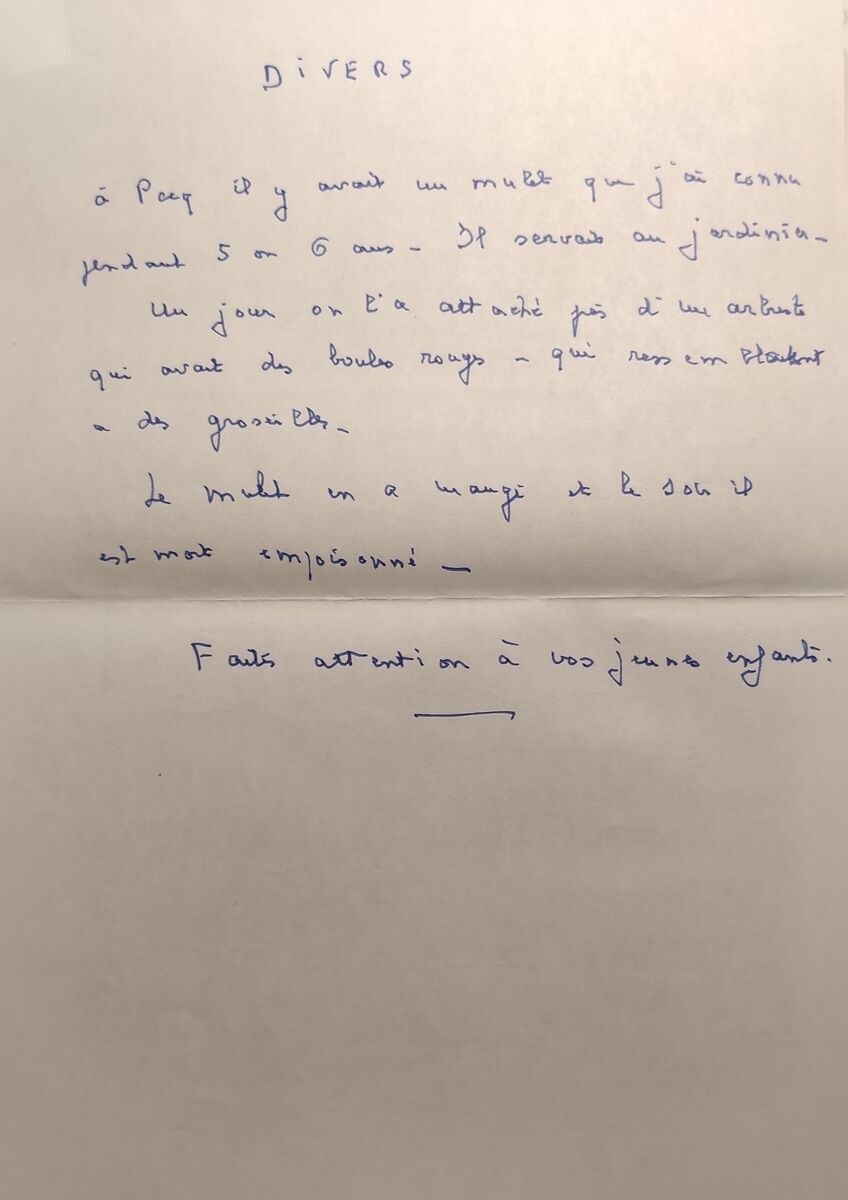 DiVERS
à Pacq il y avait un mulet que j'ai connu
pendant 5 ou 6 ans - Il servait au jardinier -
Un jour on l'a attaché près d'un arbuste
qui avait des boules rouges - qui ressemblaient
a des groseilles -
Le mulet en a mangé et le soir il
est mort empoisonné -
Faites attention à vos jeunes enfants.